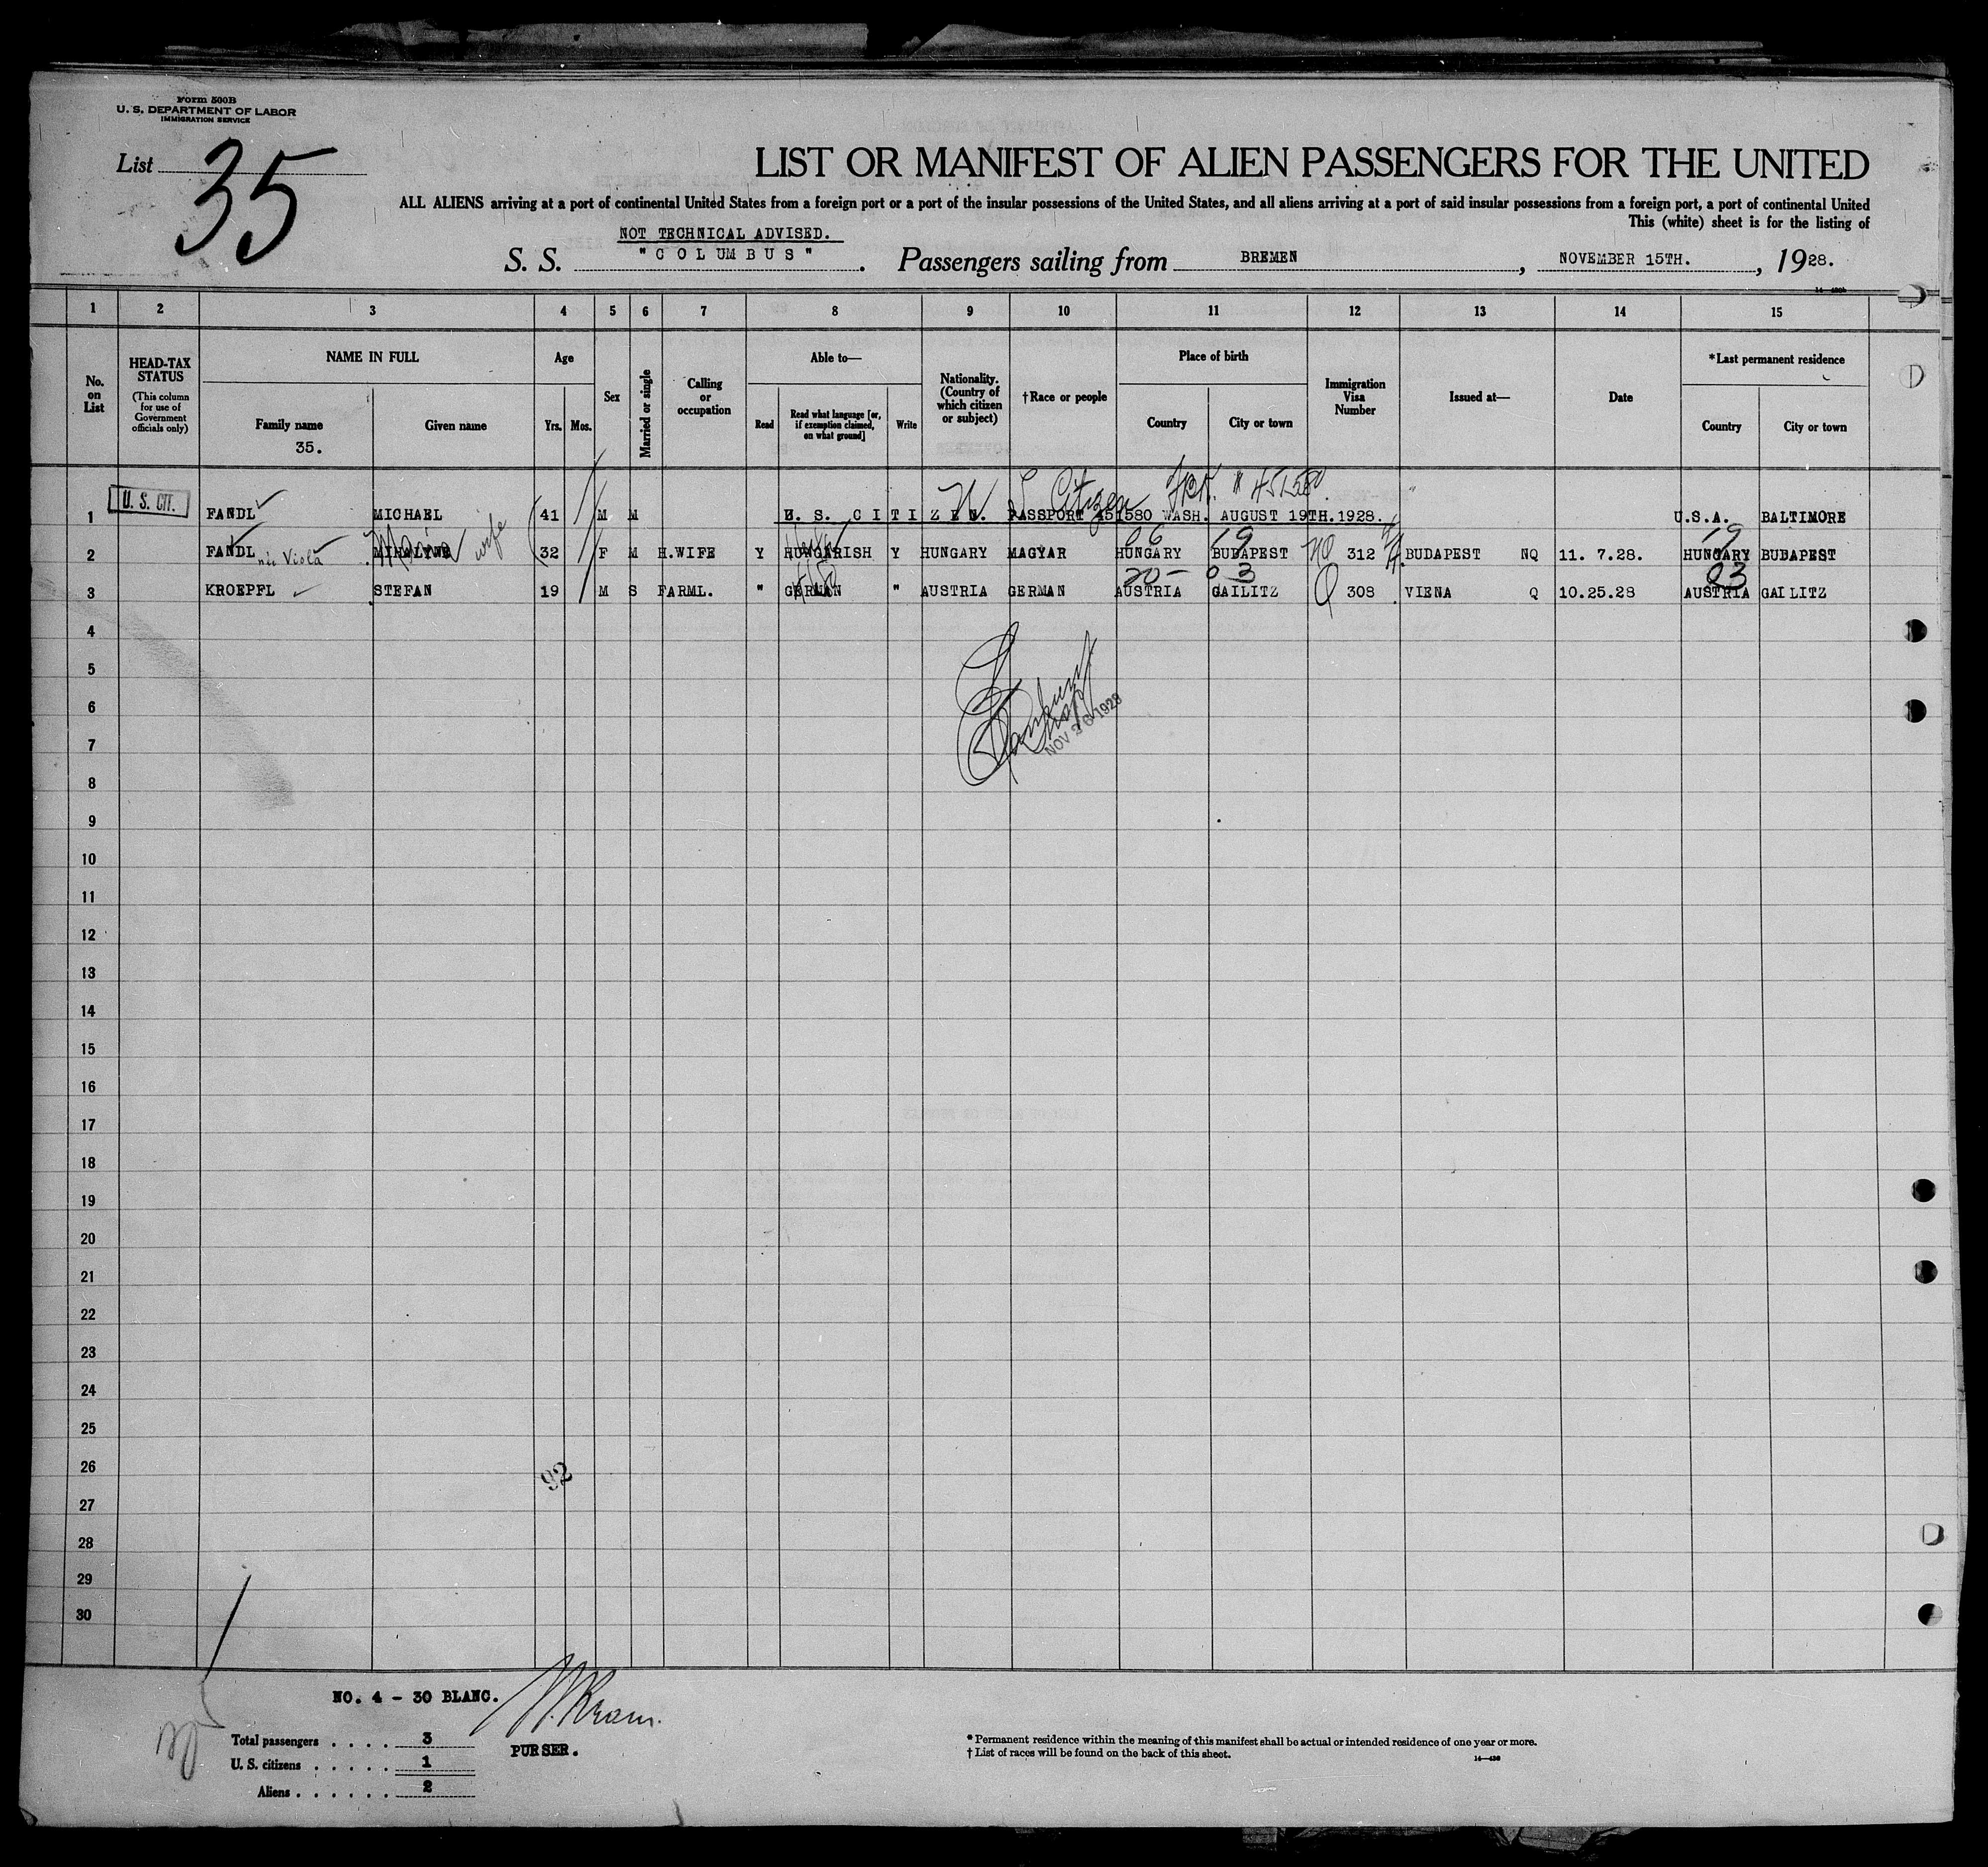 Form 500B
U. S. DEPARTMENT OF LABOR
IMMIGRATION SERVICE
List 35
LIST OR MANIFEST OF ALIEN PASSENGERS FOR THE UNITED
ALL ALIENS arriving at a port of continental United States from a foreign port or a port of the insular possessions of the United States, and all aliens arriving at a port of said insular possessions from a foreign port, a port of continental United
This (white) sheet is for the listing of
NOT TECHNICAL ADVISED.
S. S. "COLUMBUS". Passengers sailing from BREMEN, NOVEMBER 15TH., 1928.
1 2 3 4 5 6 7 8 9 10 11 12 13 14 15
No. on List
HEAD-TAX STATUS
(This column for use of Government officials only)
NAME IN FULL
Family name
35.
Given name
Age
Yrs. Mos.
Sex
Married or single
Calling or occupation
Able to—
Read
Read what language [or, if exemption claimed, on what ground]
Write
Nationality. (Country of which citizen or subject)
†Race or people
Place of birth
Country
City or town
Immigration Visa Number
Issued at—
Date
*Last permanent residence
Country
City or town
Citizen
1 U. S. CIT. FANDL MICHAEL 41 M M U. S. CITIZEN. PASSPORT 451580 WASH. AUGUST 19TH.1928. U.S.A. BALTIMORE
Maria wife 06 19 19
2 FANDL née Viola 32 F M H.WIFE Y HUNGARISH Y HUNGARY MAGYAR HUNGARY BUDAPEST NQ 312 BUDAPEST NQ 11. 7.28. HUNGARY BUDAPEST
20- 03 03
3 KROEPFL STEFAN 19 M S FARML. " GERMAN " AUSTRIA GERMAN AUSTRIA GAILITZ Q 308 VIENA Q 10.25.28 AUSTRIA GAILITZ
4
5
6
7
NOV 26 1928
8
9
10
11
12
13
14
15
16
17
18
19
20
21
22
23
24
25
26
92
27
28
29
30
NO. 4 - 30 BLANC.
Total passengers .... 3
PURSER.
U. S. citizens ..... 1
Aliens ...... 2
* Permanent residence within the meaning of this manifest shall be actual or intended residence of one year or more.
† List of races will be found on the back of this sheet.